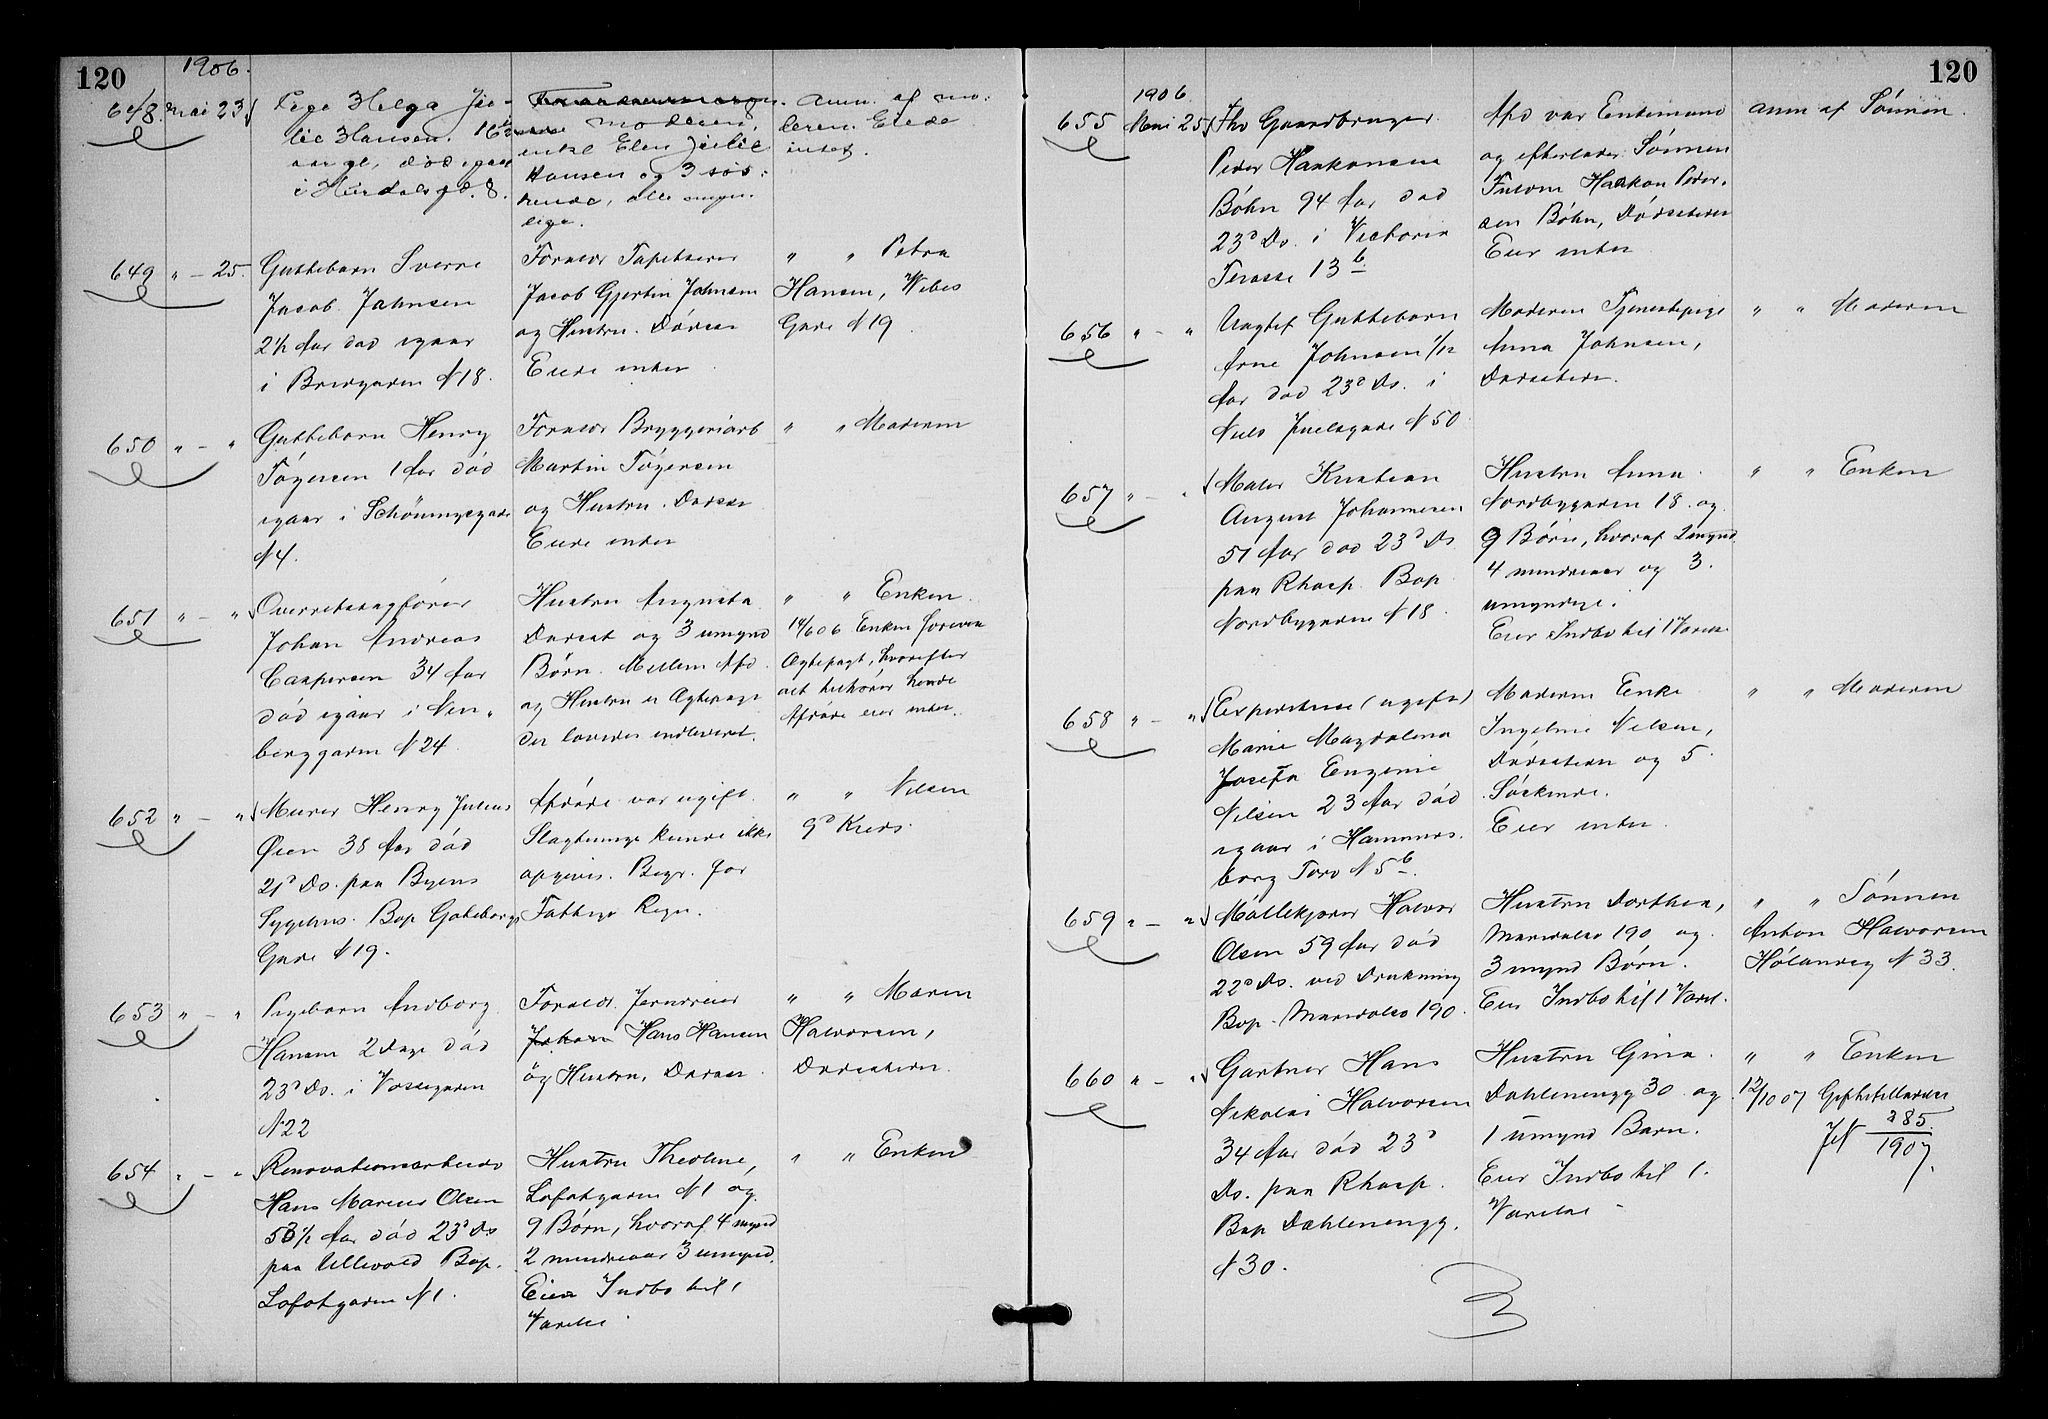 120
1906.
648. Mai 23
Pige Helga Ju-
lie Hansen. 16½
aar gl., død igaar
i Herdalsgd. 8.
Moderen,
enke Elen Julie
Hansen og 3 søs-
kende, alle umyn-
dige.
Anm. af mo-
deren. Eiede
intet.
649 " - 25.
Guttebarn Sverre
Jacob Jahnsen
2½ Aar død igaar
i Bredgaden N 18.
Foraeldr Tapetserer
Jacob Gjertin Johnsen
og Hustru. Dödsst
Eiede intet
" " Petra
Hansen, Wibes
Gade N 19.
650 " - "
Guttebarn Henry
Tögersen 1 Aar död
igaar i Schöningsgade
N 4.
Foraeldr Bryggeriarb
Martin Tögersen
og Hustru. Dødsst
Eiede intet
" " Moderen
651 " - "
Overretssagförer
Johan Andreas
Caspersen 34 Aar
död igaar i Neu-
berggaden N 24.
Hustru Augusta
Dødsst og 3 umynd
Børn. Mellem Afd
og Hustru er Ægtepagt
der lovedes indleveret.
" " Enken.
14/6 06 Enken foreviste
Ægtepagt, hvorefter
alt tilhörer hende
Afdöde eier intet.
652 " - "
Murer Henry Julius
Øien 38 Aar död
21d Ds. paa Byens
Sygehus. Bop Göteborgs
Gade N 19.
Afdöde var ugift.
Slægtninge kunde ikke
opgives. Begr. for
Fattiges Regn.
" " Nilsen
9d Kreds.
653 " - "
Pigebarn Andborg
Hansen 2 Dage död
23d Ds. i Vossegaden
N 22
Foraeldr. Jerndreier
Johan Hans Hansen
og Hustru, Dødsst
" " Maren
Halvorsen,
Dødsstedet.
654 " - "
Renovationsarbeider
Hans Marius Olsen
53½ Aar död 23d Ds
paa Ullevold Bop.
Lofotgaden N 1.
Hustru Theoline,
Lofotgaden N 1 og
9 Børn, hvoraf 4 mynd
2 mindreaar 3 umynd.
Eier Indbo til 1
Værelse
" " Enken
120
1906
655 Mai 25
Fhv Gaardbruger
Peder Haakonsen
Böhn 94 Aar död
23d Ds. i Victoria
Terasse 13b
Afd var Enkemand
og efterlader Sönnen
Haakon Peder-
sen Böhn, Dödsstedet
Eier intet
anm af Sönnen.
656 " - "
Uægtef Guttebarn
Arne Johnsen 1/12
Aar död 23d Ds. i
Niels Juelsgade N 50
Moderen Tjenestepige
Anna Johnsen,
Dødsstedet.
" " Moderen
657 " - "
Maler Kristian
August Johannesen
51 Aar död 23d Ds
paa Rhosp. Bop
Nordbygaden N 18.
Hustru Anna
Nordbygaden 18. og
9 Börn, hvoraf 2 mynd.
4 mindreaar og 3.
umyndige.
Eier Indbo til 1 Værelse
" " Enken
658 " - "
Experitrice (ugift)
Marie Magdalena
Josefa Eugenie
Nilsen 23 Aar död
igaar i Hammers-
borg Torv N 5b.
Moderen Enke
Ingeline Nilsen,
Dödsstedet og 5
Söskende.
Eier intet.
" " Moderen
659 " - "
Möllekjører Halvor
Olsen 59 Aar död
22d Ds. ved Drukning
Bop. Maridalsv 190.
Hustru Dorthea,
Maridalsv 190 og
3 mynd Børn.
Eier Indbo til 1 Værel.
" " Sönnen
Anton Halvorsen
Hölandsg N 33.
660 " - "
Gartner Hans
Nikolai Halvorsen
34 Aar död 23d
Ds. paa Rhosp.
Bop Dahlenengg.
N 30.
Hustru Gina.
Dahlenengg 30 og
1 umynd Barn.
Eier Indbo til 1.
Værelse
" " Enken
12/10 07
385
1907.